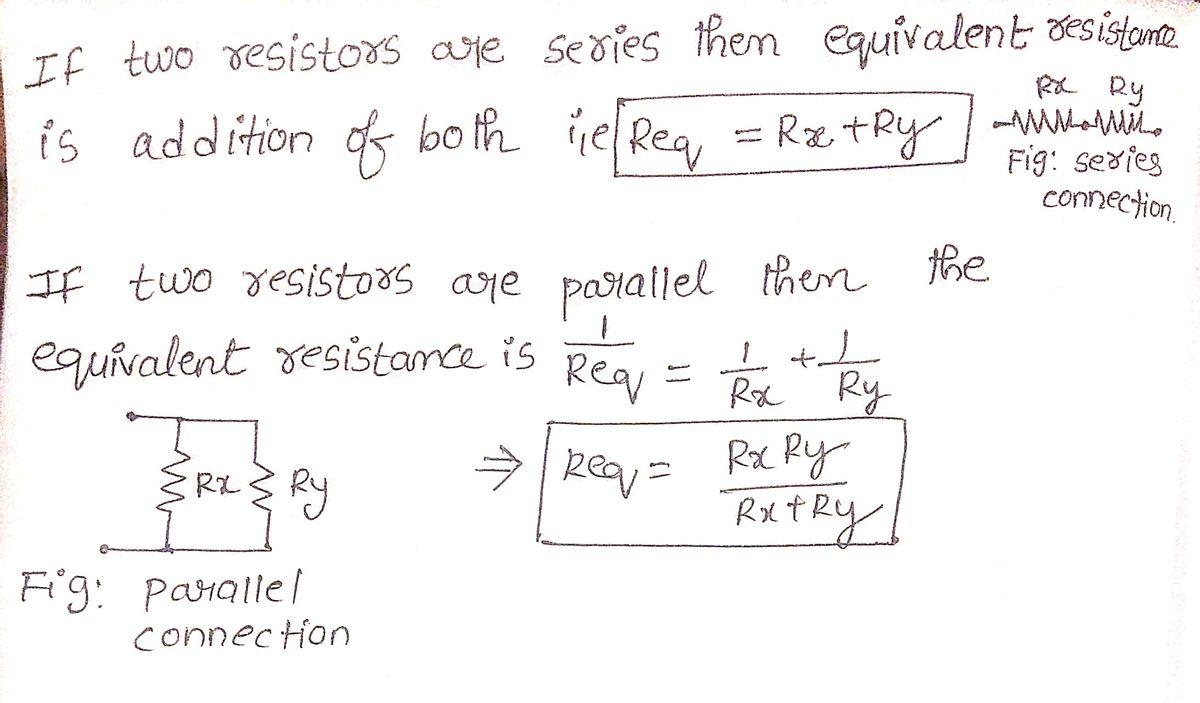 If two resistors are series then equivalent resistance
is addition of both i,e Req = Rx + Ry
Rx Ry
Fig: series
connection.
If two resistors are parallel then the
equivalent resistance is 1/Req = 1/Rx + 1/Ry
⇒ Req = Rx Ry / Rx + Ry
Rx Ry
Fig: Parallel
connection